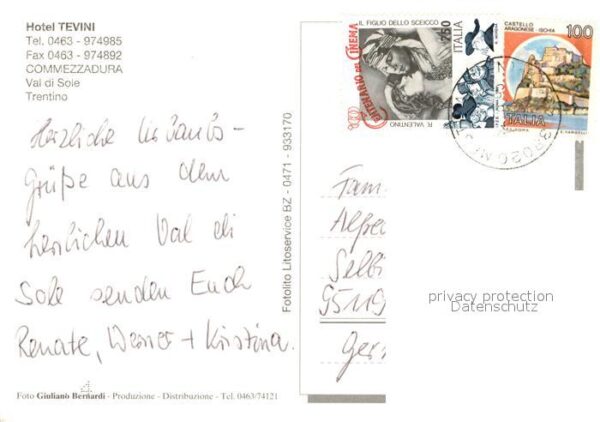 Hotel TEVINI
Tel. 0463 - 974985
Fax 0463 - 974892
COMMEZZADURA
Val di Sole
Trentino
Herzliche Urlaubs -
Grüße aus dem
herrlichen Val di
Sole senden Euch
Renate, Werner + Kristina.
Foto Giuliano Bernardi - Produzione - Distribuzione - Tel. 0463/74121
Fotolito Litoservice BZ - 0471 - 933170
CENTENARIO DEL CINEMA
IL FIGLIO DELLO SCEICCO
R. VALENTINO
750
ITALIA
CASTELLO
ARAGONESE - ISCHIA
100
ITALIA
Fam.
Alfred
Selbi
95119
Ger
privacy protection
Datenschutz